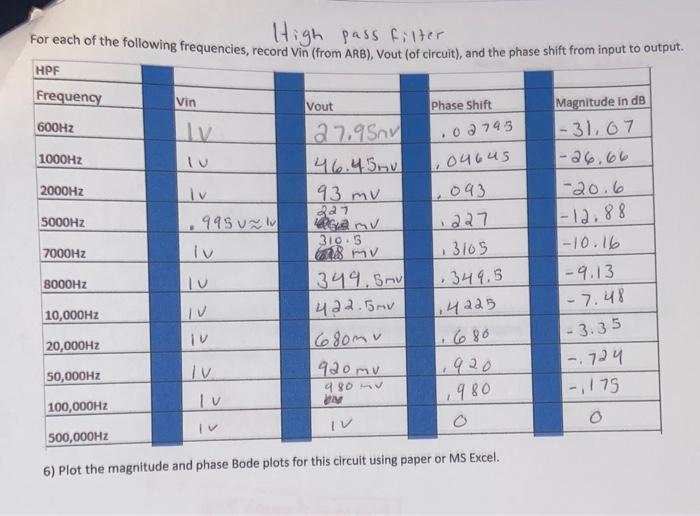 High pass filter
For each of the following frequencies, record Vin (from ARB), Vout (of circuit), and the phase shift from input to output.
HPF
Frequency Vin Vout Phase Shift Magnitude in dB
600Hz 1V 27.95mV .02795 -31.07
1000Hz 1V 46.45mV .04645 -26.66
2000Hz 1V 93 mV .093 -20.6
5000Hz .995V≈1V 227 mV .227 -12.88
7000Hz 1V 310.5 mV .3105 -10.16
8000Hz 1V 349.5mV .349.5 -9.13
10,000Hz 1V 422.5mV .4225 -7.48
20,000Hz 1V 680mV .680 -3.35
50,000Hz 1V 920mV .920 -.724
100,000Hz 1V 980 mV .980 -.175
500,000Hz 1V 1V 0 0
6) Plot the magnitude and phase Bode plots for this circuit using paper or MS Excel.